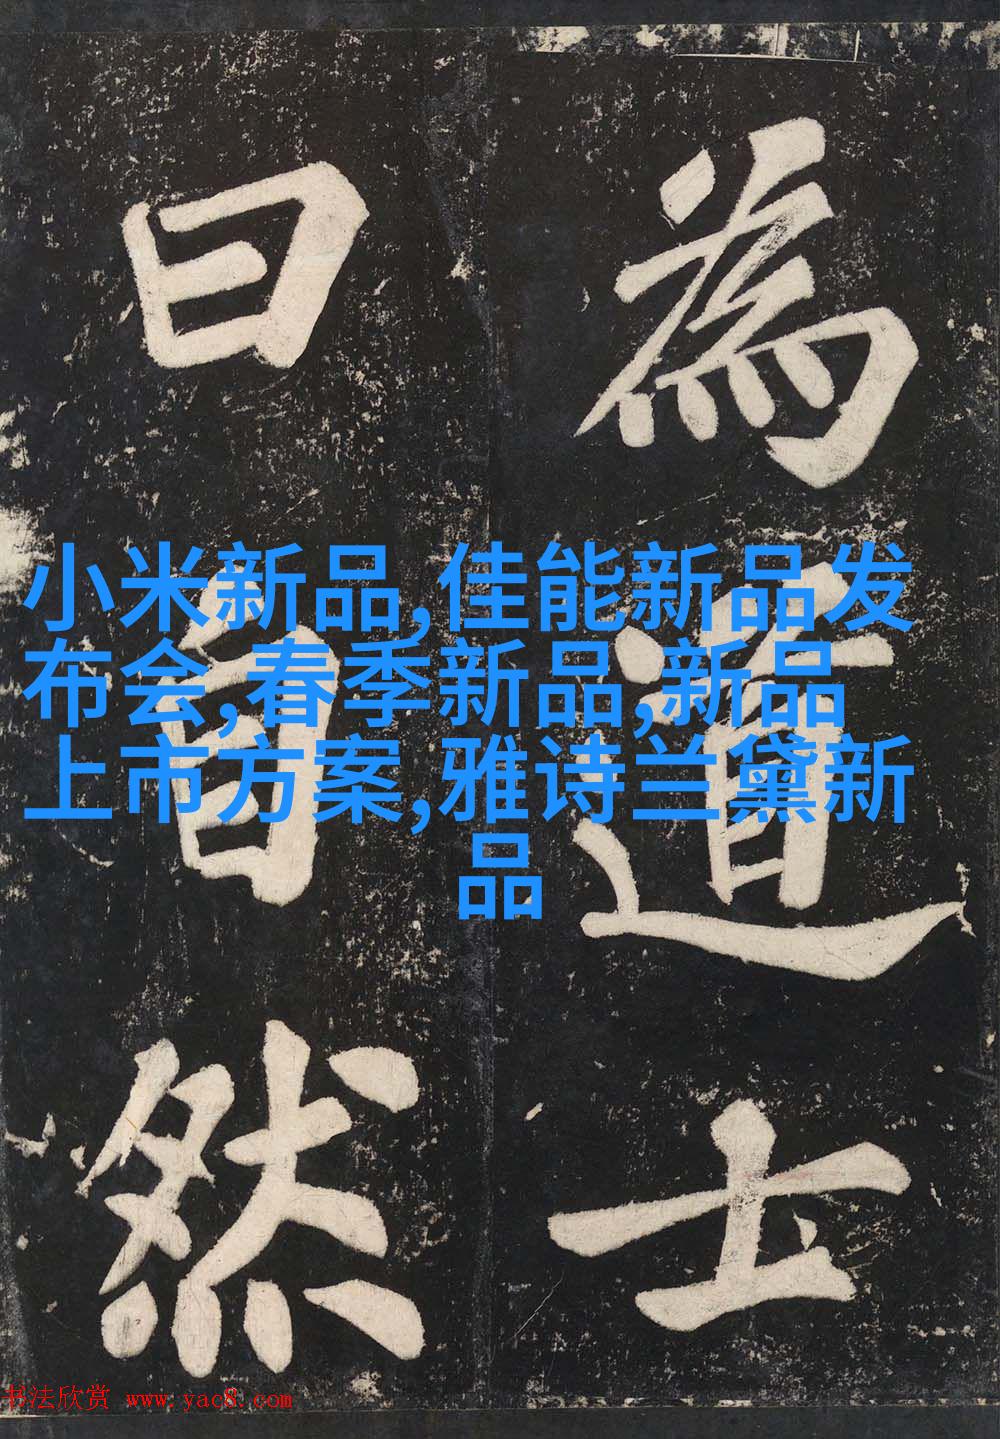 為道士
曰自然
小米新品,佳能新品发
布会,春季新品,新品
上市方案,雅诗兰黛新
品
书法欣赏 www.yac8.com